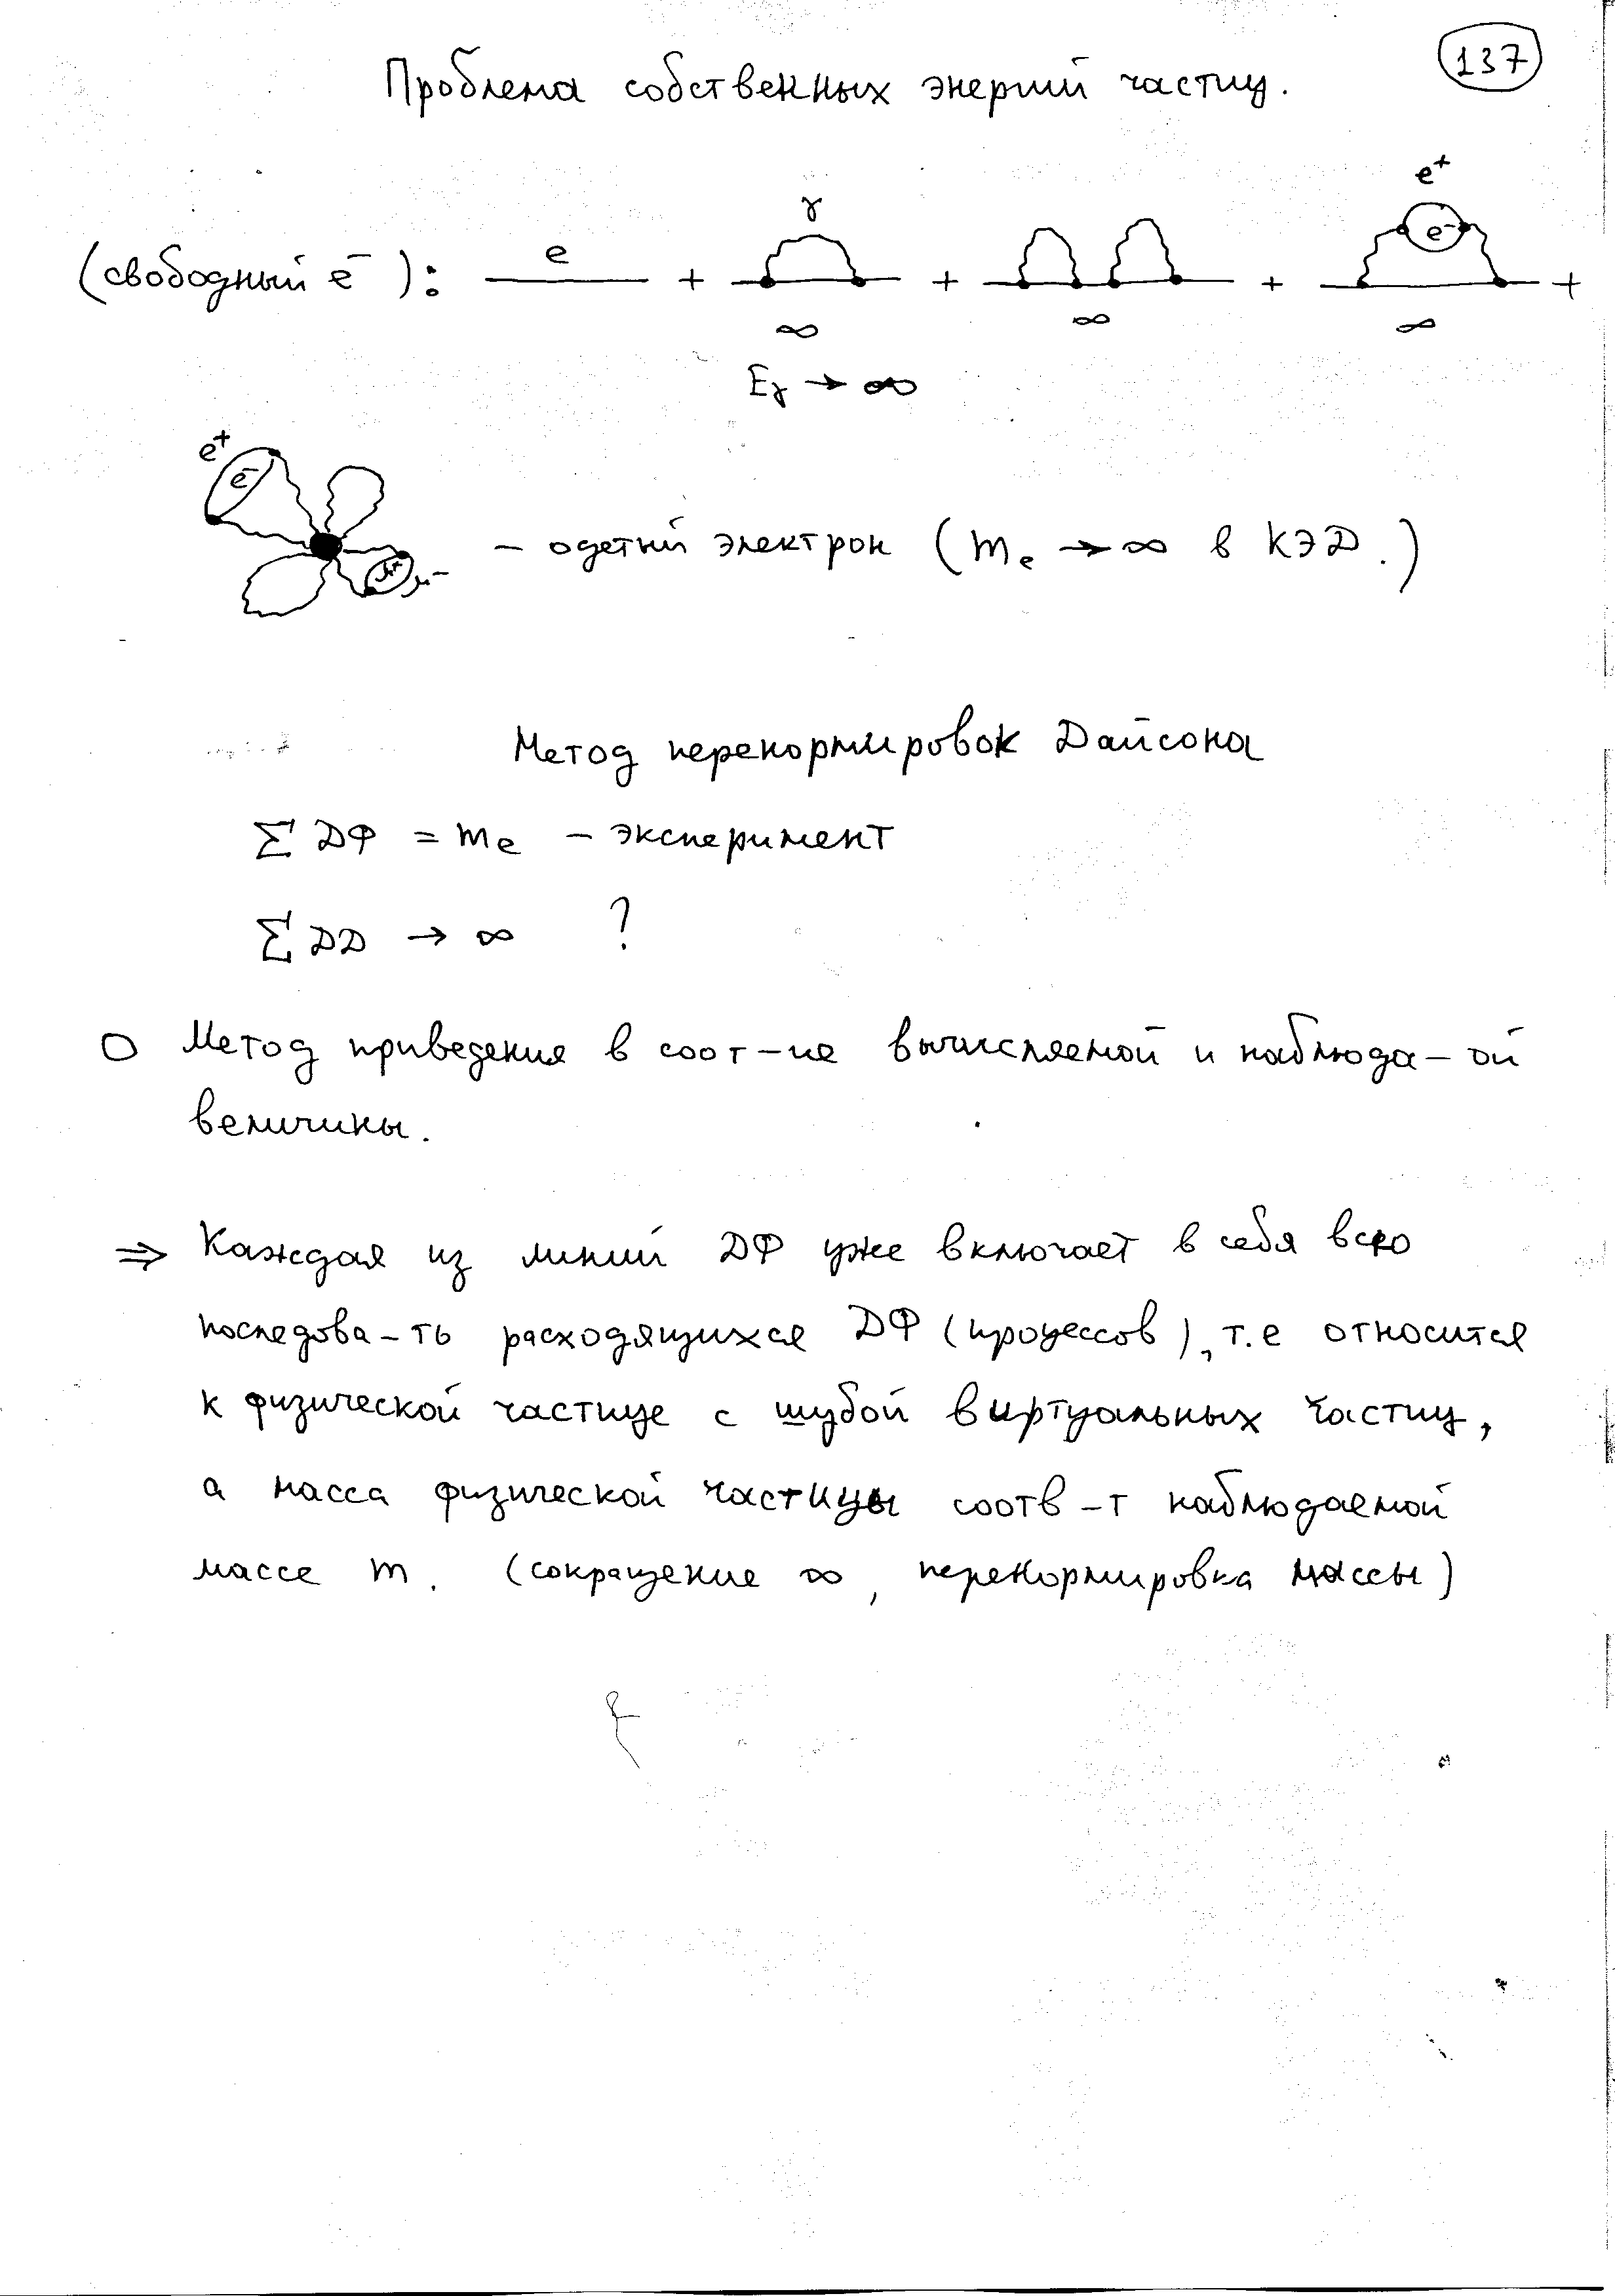 137
Проблема собственных энергий частиц.
e⁺
γ
(свободный e⁻): e + + + e⁻ +
∞ ∞ ∞
Eγ → ∞
e⁺
e⁻
– одетый электрон (mₑ → ∞ в КЭД.)
μ⁻
Метод перенормировок Дайсона
Σ ДФ = mₑ – эксперимент
Σ ДД → ∞ ?
Метод приведения в соот-ие вычисляемой и наблюда-ой
величины.
⇒ Каждая из линий ДФ уже включает в себя всю
последова-ть расходящихся ДФ (процессов), т.е относится
к физической частице с шубой виртуальных частиц,
а масса физической частицы соотв-т наблюдаемой
массе m. (сокращение ∞, перенормировка массы)